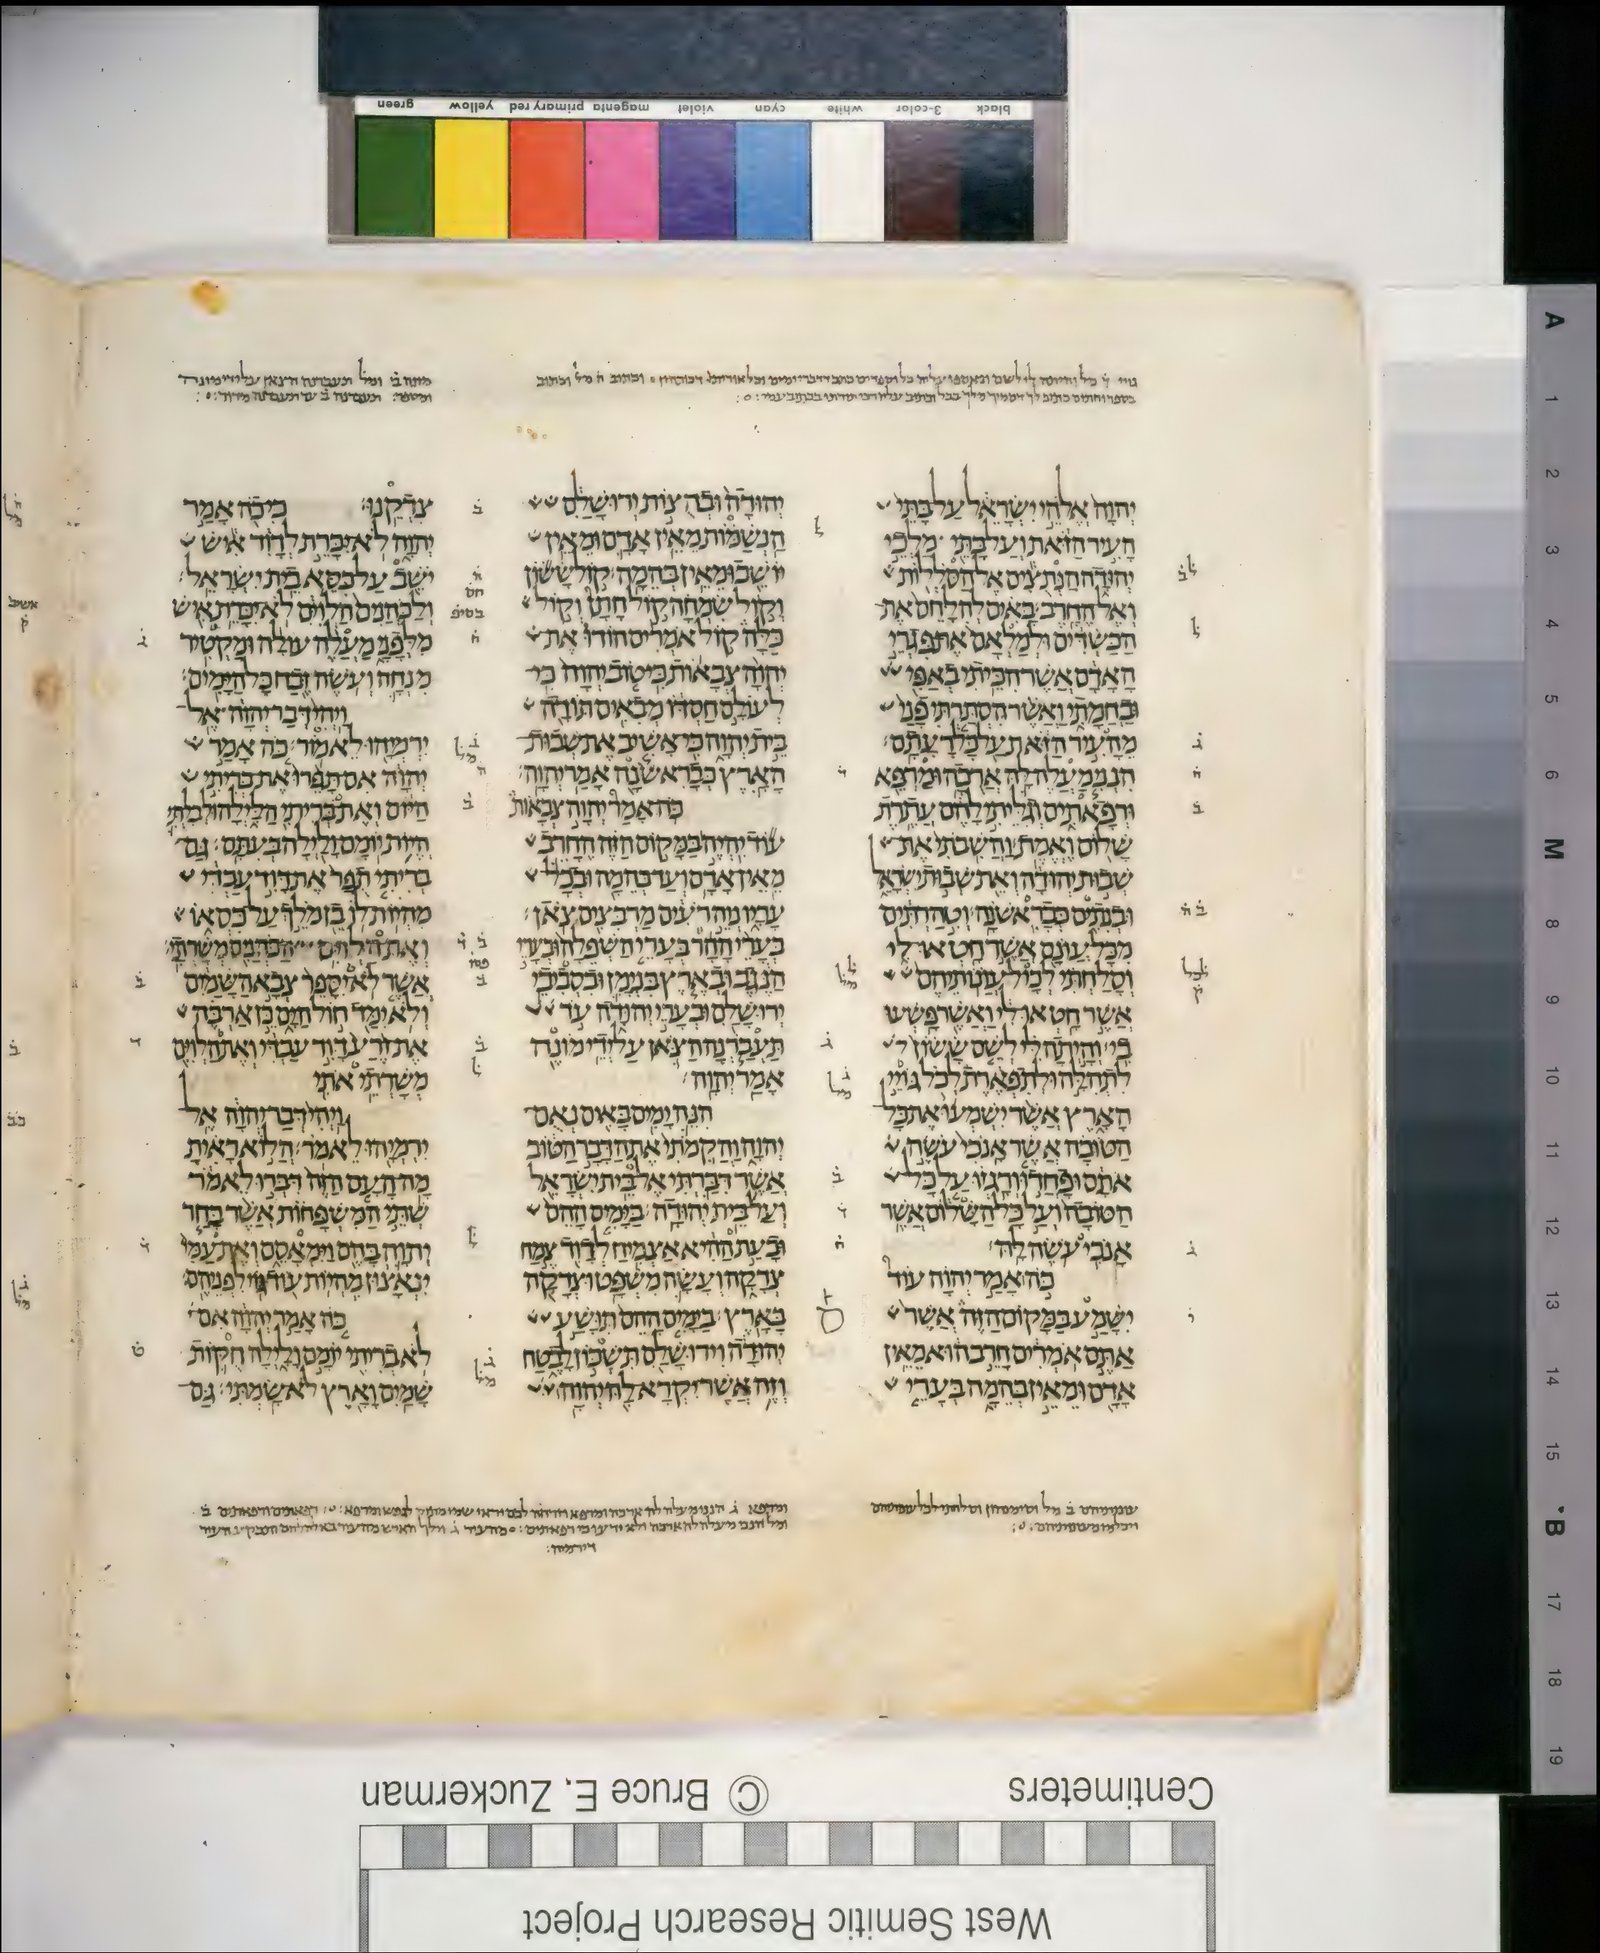 black 3-color white cyan violet magenta primary red yellow green
יהוה אלהי ישראל על בתי
העיר הזאת ועל בתי מלכי
יהודה הנתצים אל הסללות
ואל החרב באים להלחם את
הכשדים ולמלאם את פגרי
האדם אשר הכיתי באפי
ובחמתי ואשר הסתרתי פני
מהעיר הזאת על כל רעתם
הנני מעלה לה ארכה ומרפא
ורפאתים וגליתי להם עתרת
שלום ואמת והשבתי את
שבות יהודה ואת שבות ישראל
ובנתים כבראשנה וטהרתים
מכל עונם אשר חטאו לי
וסלחתי לכול עונותיהם
אשר חטאו לי ואשר פשעו
בי והיתה לי לשם ששון
לתהלה ולתפארת לכל גויי
הארץ אשר ישמעו את כל
הטובה אשר אנכי עשה
אתם ופחדו ורגזו על כל
הטובה ועל כל השלום אשר
אנכי עשה לה
כה אמר יהוה עוד
ישמע במקום הזה אשר
אתם אמרים חרב הוא מאין
אדם ומאין בהמה בערי
יהודה ובחצות ירושלם
הנשמות מאין אדם ומאין
יושב ומאין בהמה קול ששון
וקול שמחה קול חתן וקול
כלה קול אמרים הודו את
יהוה צבאות כי טוב יהוה כי
לעולם חסדו מבאים תודה
בית יהוה כי אשיב את שבות
הארץ כבראשנה אמר יהוה
כה אמר יהוה צבאות
עוד יהיה במקום הזה החרב
מאין אדם ועד בהמה ובכל
עריו נוה רעים מרבצים צאן
בערי ההר בערי השפלה ובערי
הנגב ובארץ בנימן ובסביבי
ירושלם ובערי יהודה עד
תעברנה הצאן על ידי מונה
אמר יהוה
הנה ימים באים נאם
יהוה והקמתי את הדבר הטוב
אשר דברתי אל בית ישראל
ועל בית יהודה בימים ההם
ובעת ההיא אצמיח לדוד צמח
צדקה ועשה משפט וצדקה
בארץ בימים ההם תושע
יהודה וירושלם תשכון לבטח
וזה אשר יקרא לה יהוה
צדקנו כי כה אמר
יהוה לא יכרת לדוד איש
ישב על כסא בית ישראל
ולכהנים הלוים לא יכרת איש
מלפני מעלה עולה ומקטיר
מנחה ועשה זבח כל הימים
ויהי דבר יהוה אל
ירמיהו לאמור כה אמר
יהוה אם תפרו את בריתי
היום ואת בריתי הלילה ולבלתי
היות יומם ולילה בעתם גם
בריתי תפר את דוד עבדי
מהיות לו בן מלך על כסאו
ואת הלוים הכהנים משרתי
אשר לא יספר צבא השמים
ולא ימד חול הים כן ארבה
את זרע דוד עבדי ואת הלוים
משרתי אתי
ויהי דבר יהוה אל
ירמיהו לאמר הלוא ראית
מה העם הזה דברו לאמר
שתי המשפחות אשר בחר
יהוה בהם וימאסם ואת עמי
ינאצון מהיות עוד גוי לפניהם
כה אמר יהוה אם
לא בריתי יומם ולילה חקות
שמים וארץ לא שמתי גם
A 1 2 3 4 5 6 M 8 9 10 11 12 13 14 15 B 17 18 19
Centimeters © Bruce E. Zuckerman
West Semitic Research Project